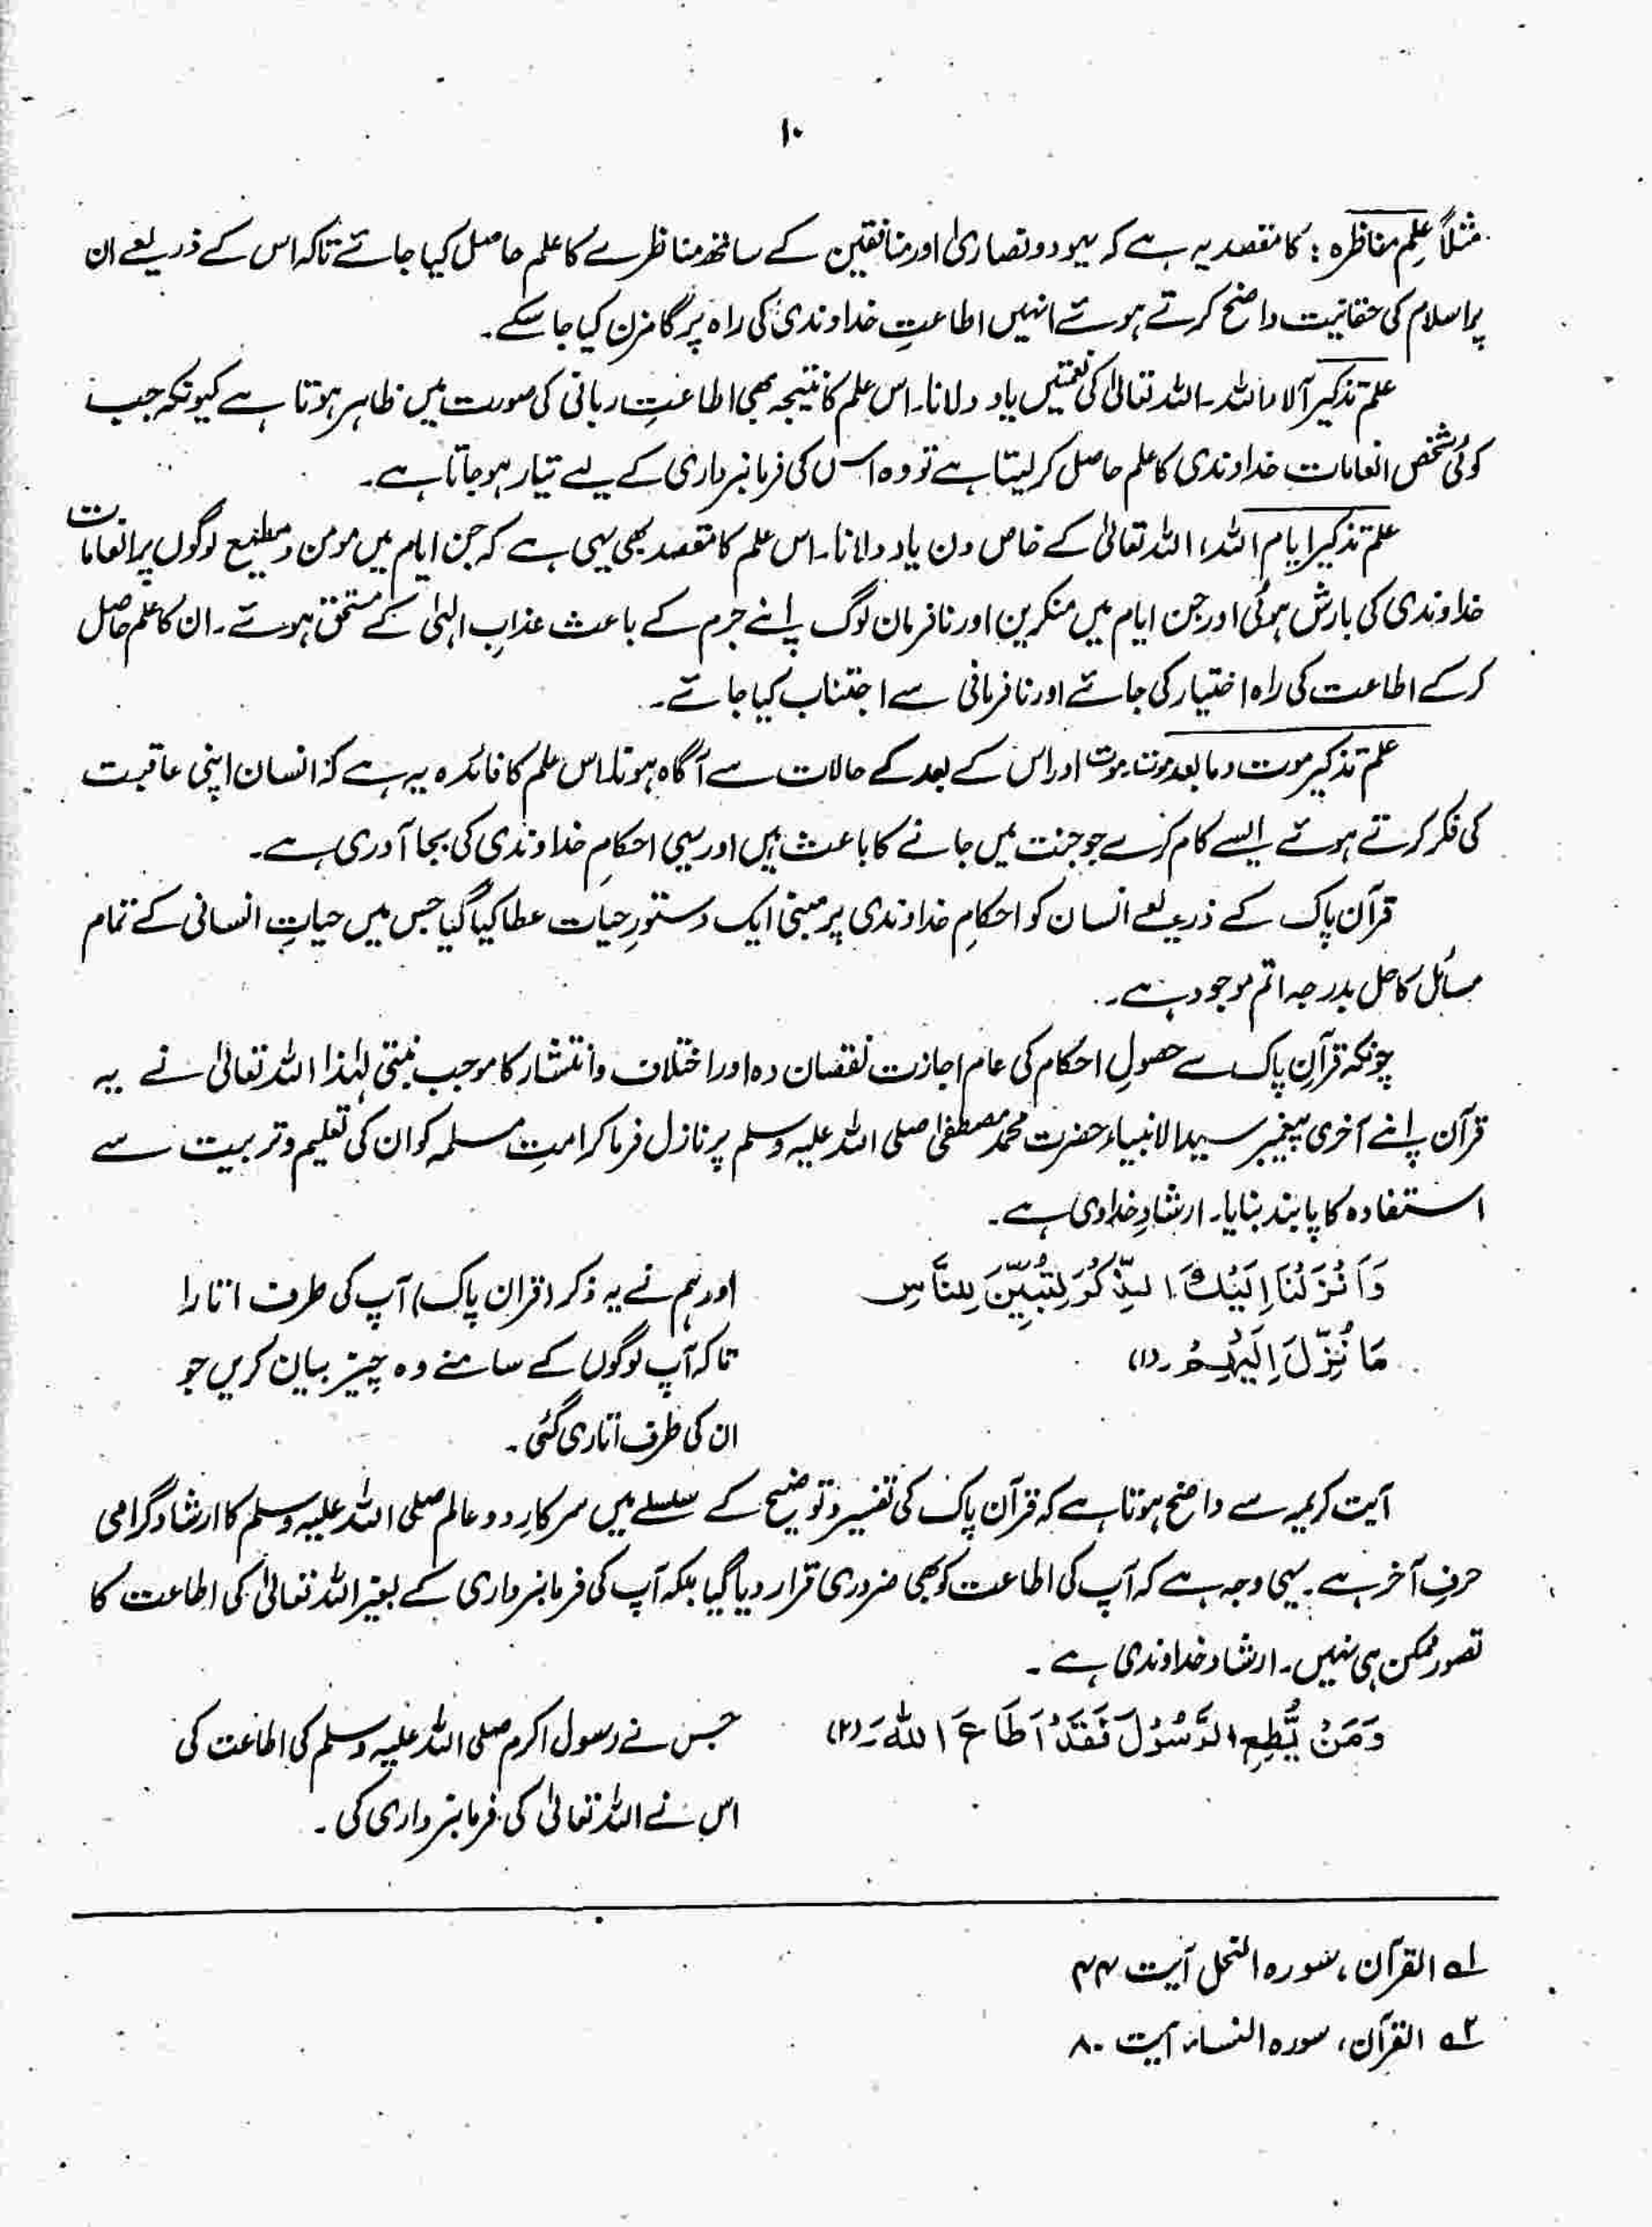 ۱۰
مثلاً علم مناظرہ : کا مقصد یہ ہے کہ یہود و نصاریٰ اور منافقین کے ساتھ مناظرے کا علم حاصل کیا جائے تاکہ اس کے ذریعے ان
پر اسلام کی حقانیت واضح کرتے ہوئے انہیں اطاعتِ خداوندی کی راہ پر گامزن کیا جا سکے۔
علم تذکیر آلاء اللہ ۔ اللہ تعالیٰ کی نعمتیں یاد دلانا۔ اس علم کا نتیجہ بھی اطاعتِ ربانی کی صورت میں ظاہر ہوتا ہے کیونکہ جب
کوئی شخص انعامات خداوندی کا علم حاصل کر لیتا ہے تو وہ اس کی فرمانبرداری کے لیے تیار ہو جاتا ہے۔
علم تذکیر ایام اللہ، اللہ تعالیٰ کے خاص دن یاد دلانا۔ اس علم کا مقصد بھی یہی ہے کہ جن ایام میں مومن و مطیع لوگوں پر انعامات
خداوندی کی بارش ہوئی اور جن ایام میں منکرین اور نافرمان لوگ اپنے جرم کے باعث عذابِ الٰہی کے مستحق ہوئے۔ ان کا علم حاصل
کر کے اطاعت کی راہ اختیار کی جائے اور نافرمانی سے اجتناب کیا جائے۔
علم تذکیر موت و ما بعد موت، موت اور اس کے بعد کے حالات سے آگاہ ہونا، اس علم کا فائدہ یہ ہے کہ انسان اپنی عاقبت
کی فکر کرتے ہوئے ایسے کام کرے جو جنت میں جانے کا باعث ہیں اور یہی احکامِ خداوندی کی بجا آوری ہے۔
قرآن پاک کے ذریعے انسان کو احکامِ خداوندی پر مبنی ایک دستورِ حیات عطا کیا گیا جس میں حیاتِ انسانی کے تمام
مسائل کا حل بدرجہ اتم موجود ہے۔
چونکہ قرآنِ پاک سے حصولِ احکام کی عام اجازت نقصان دہ اور اختلاف و انتشار کا موجب بنتی لہٰذا اللہ تعالیٰ نے یہ
قرآن اپنے آخری پیغمبر سید الانبیاء حضرت محمد مصطفیٰ صلی اللہ علیہ وسلم پر نازل فرما کر امتِ مسلمہ کو ان کی تعلیم و تربیت سے
استفادہ کا پابند بنایا۔ ارشادِ خداوی ہے۔
وَاَنْزَلْنَا اِلَيْكَ الذِّكْرَ لِتُبَيِّنَ لِلنَّاسِ
مَا نُزِّلَ اِلَيْهِمْ ۔(۱)
اور ہم نے یہ ذکر (قران پاک) آپ کی طرف اتارا
تاکہ آپ لوگوں کے سامنے وہ چیز بیان کریں جو
ان کی طرف اتاری گئی۔
آیت کریمہ سے واضح ہوتا ہے کہ قرآن پاک کی تفسیر و توضیح کے سلسلے میں سرکارِ دو عالم صلی اللہ علیہ وسلم کا ارشاد گرامی
حرفِ آخر ہے۔ یہی وجہ ہے کہ آپ کی اطاعت کو بھی ضروری قرار دیا گیا بلکہ آپ کی فرمانبرداری کے بغیر اللہ تعالیٰ کی اطاعت کا
تصور ممکن ہی نہیں۔ ارشاد خداوندی ہے۔
وَمَنْ يُّطِعِ الرَّسُوْلَ فَقَدْ اَطَاعَ اللهَ ۔(۲)
جس نے رسول اکرم صلی اللہ علیہ وسلم کی اطاعت کی
اس نے اللہ تعالیٰ کی فرمانبرداری کی۔
۱؎ القرآن، سورہ النحل آیت ۴۴
۲؎ القرآن، سورہ النساء آیت ۸۰